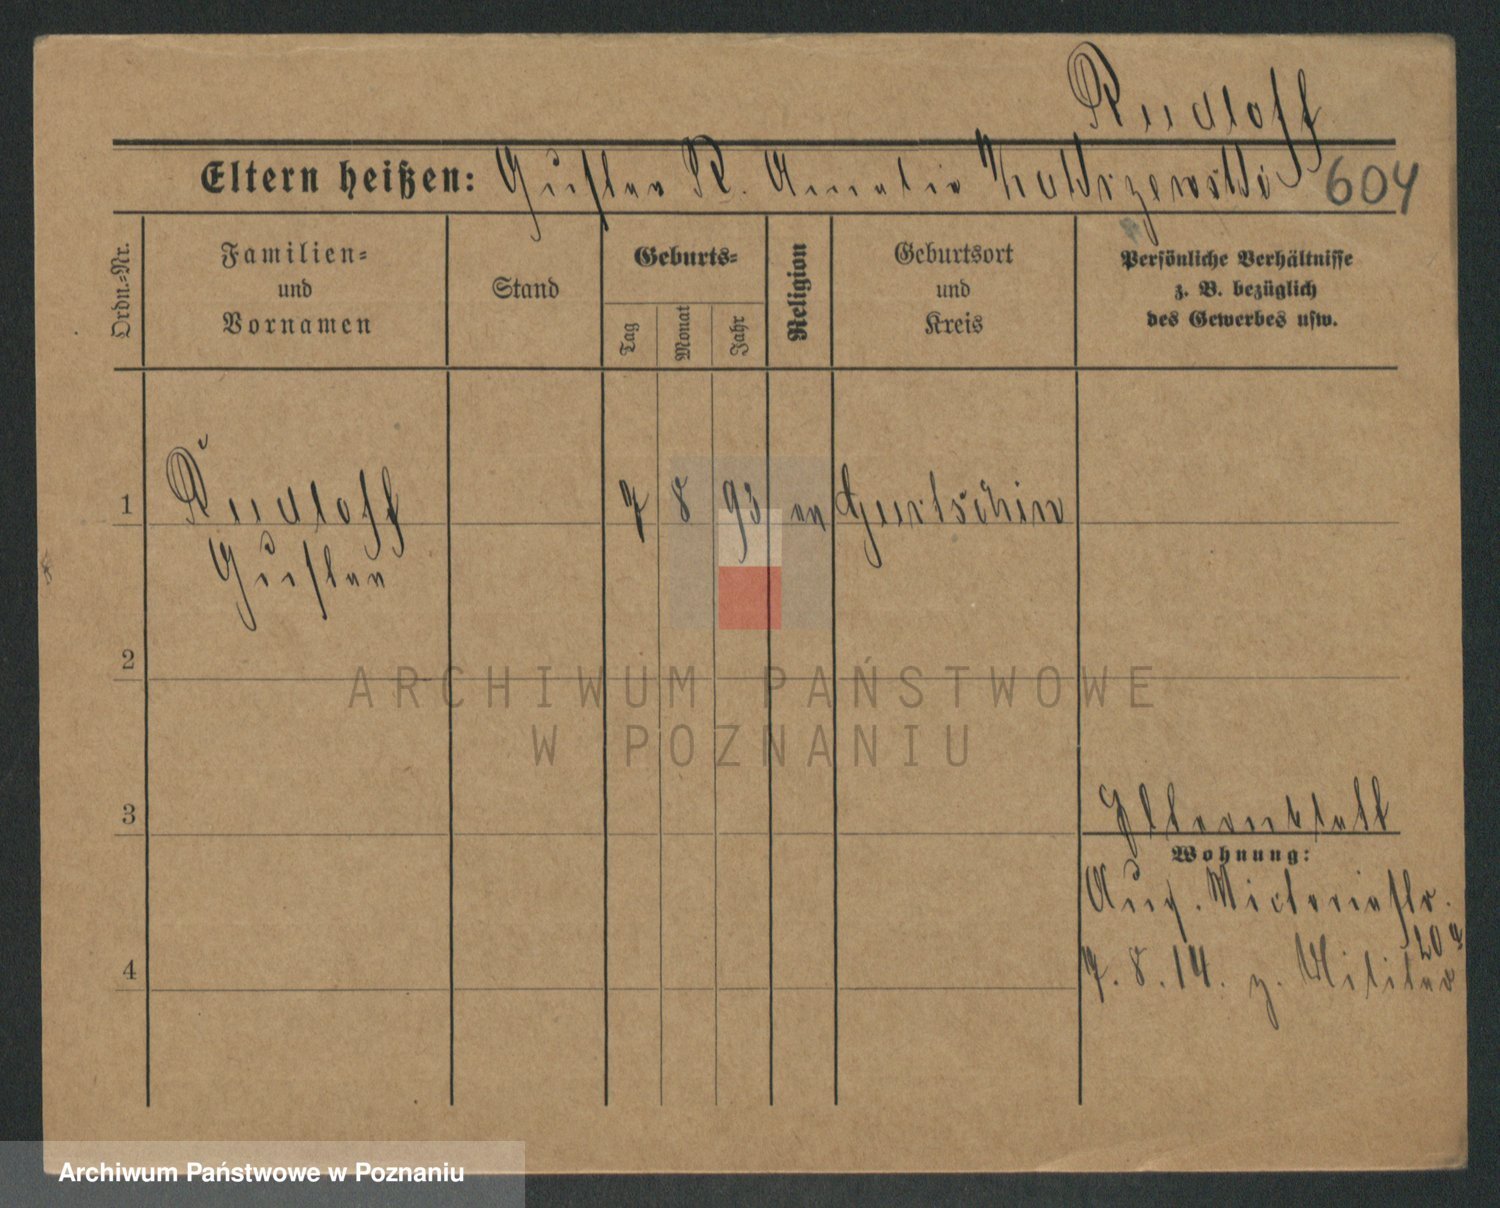 Rudloff
Eltern heißen: Gustav R. Amalie
604
Ordn.-Nr.
Familien-
und
Vornamen
Stand
Geburts-
Tag
Monat
Jahr
Religion
Geburtsort
und
Kreis
Persönliche Verhältnisse
z. B. bezüglich
des Gewerbes usw.
1
Rudloff
7 8 93 ev Gurtschin
Gustav
2
ARCHIWUM PAŃSTWOWE
W POZNANIU
3
Elternblatt
Wohnung:
Aug. Victoriastr.
20 a
4
7. 8. 14. z. Militär
Archiwum Państwowe w Poznaniu